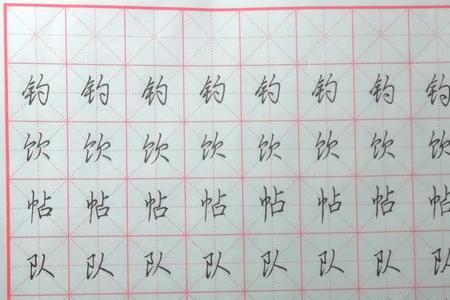 钓钓钓钓钓钓钓钓
饮饮饮饮饮饮饮饮
帖帖帖帖帖帖帖帖
队队队队队队队队